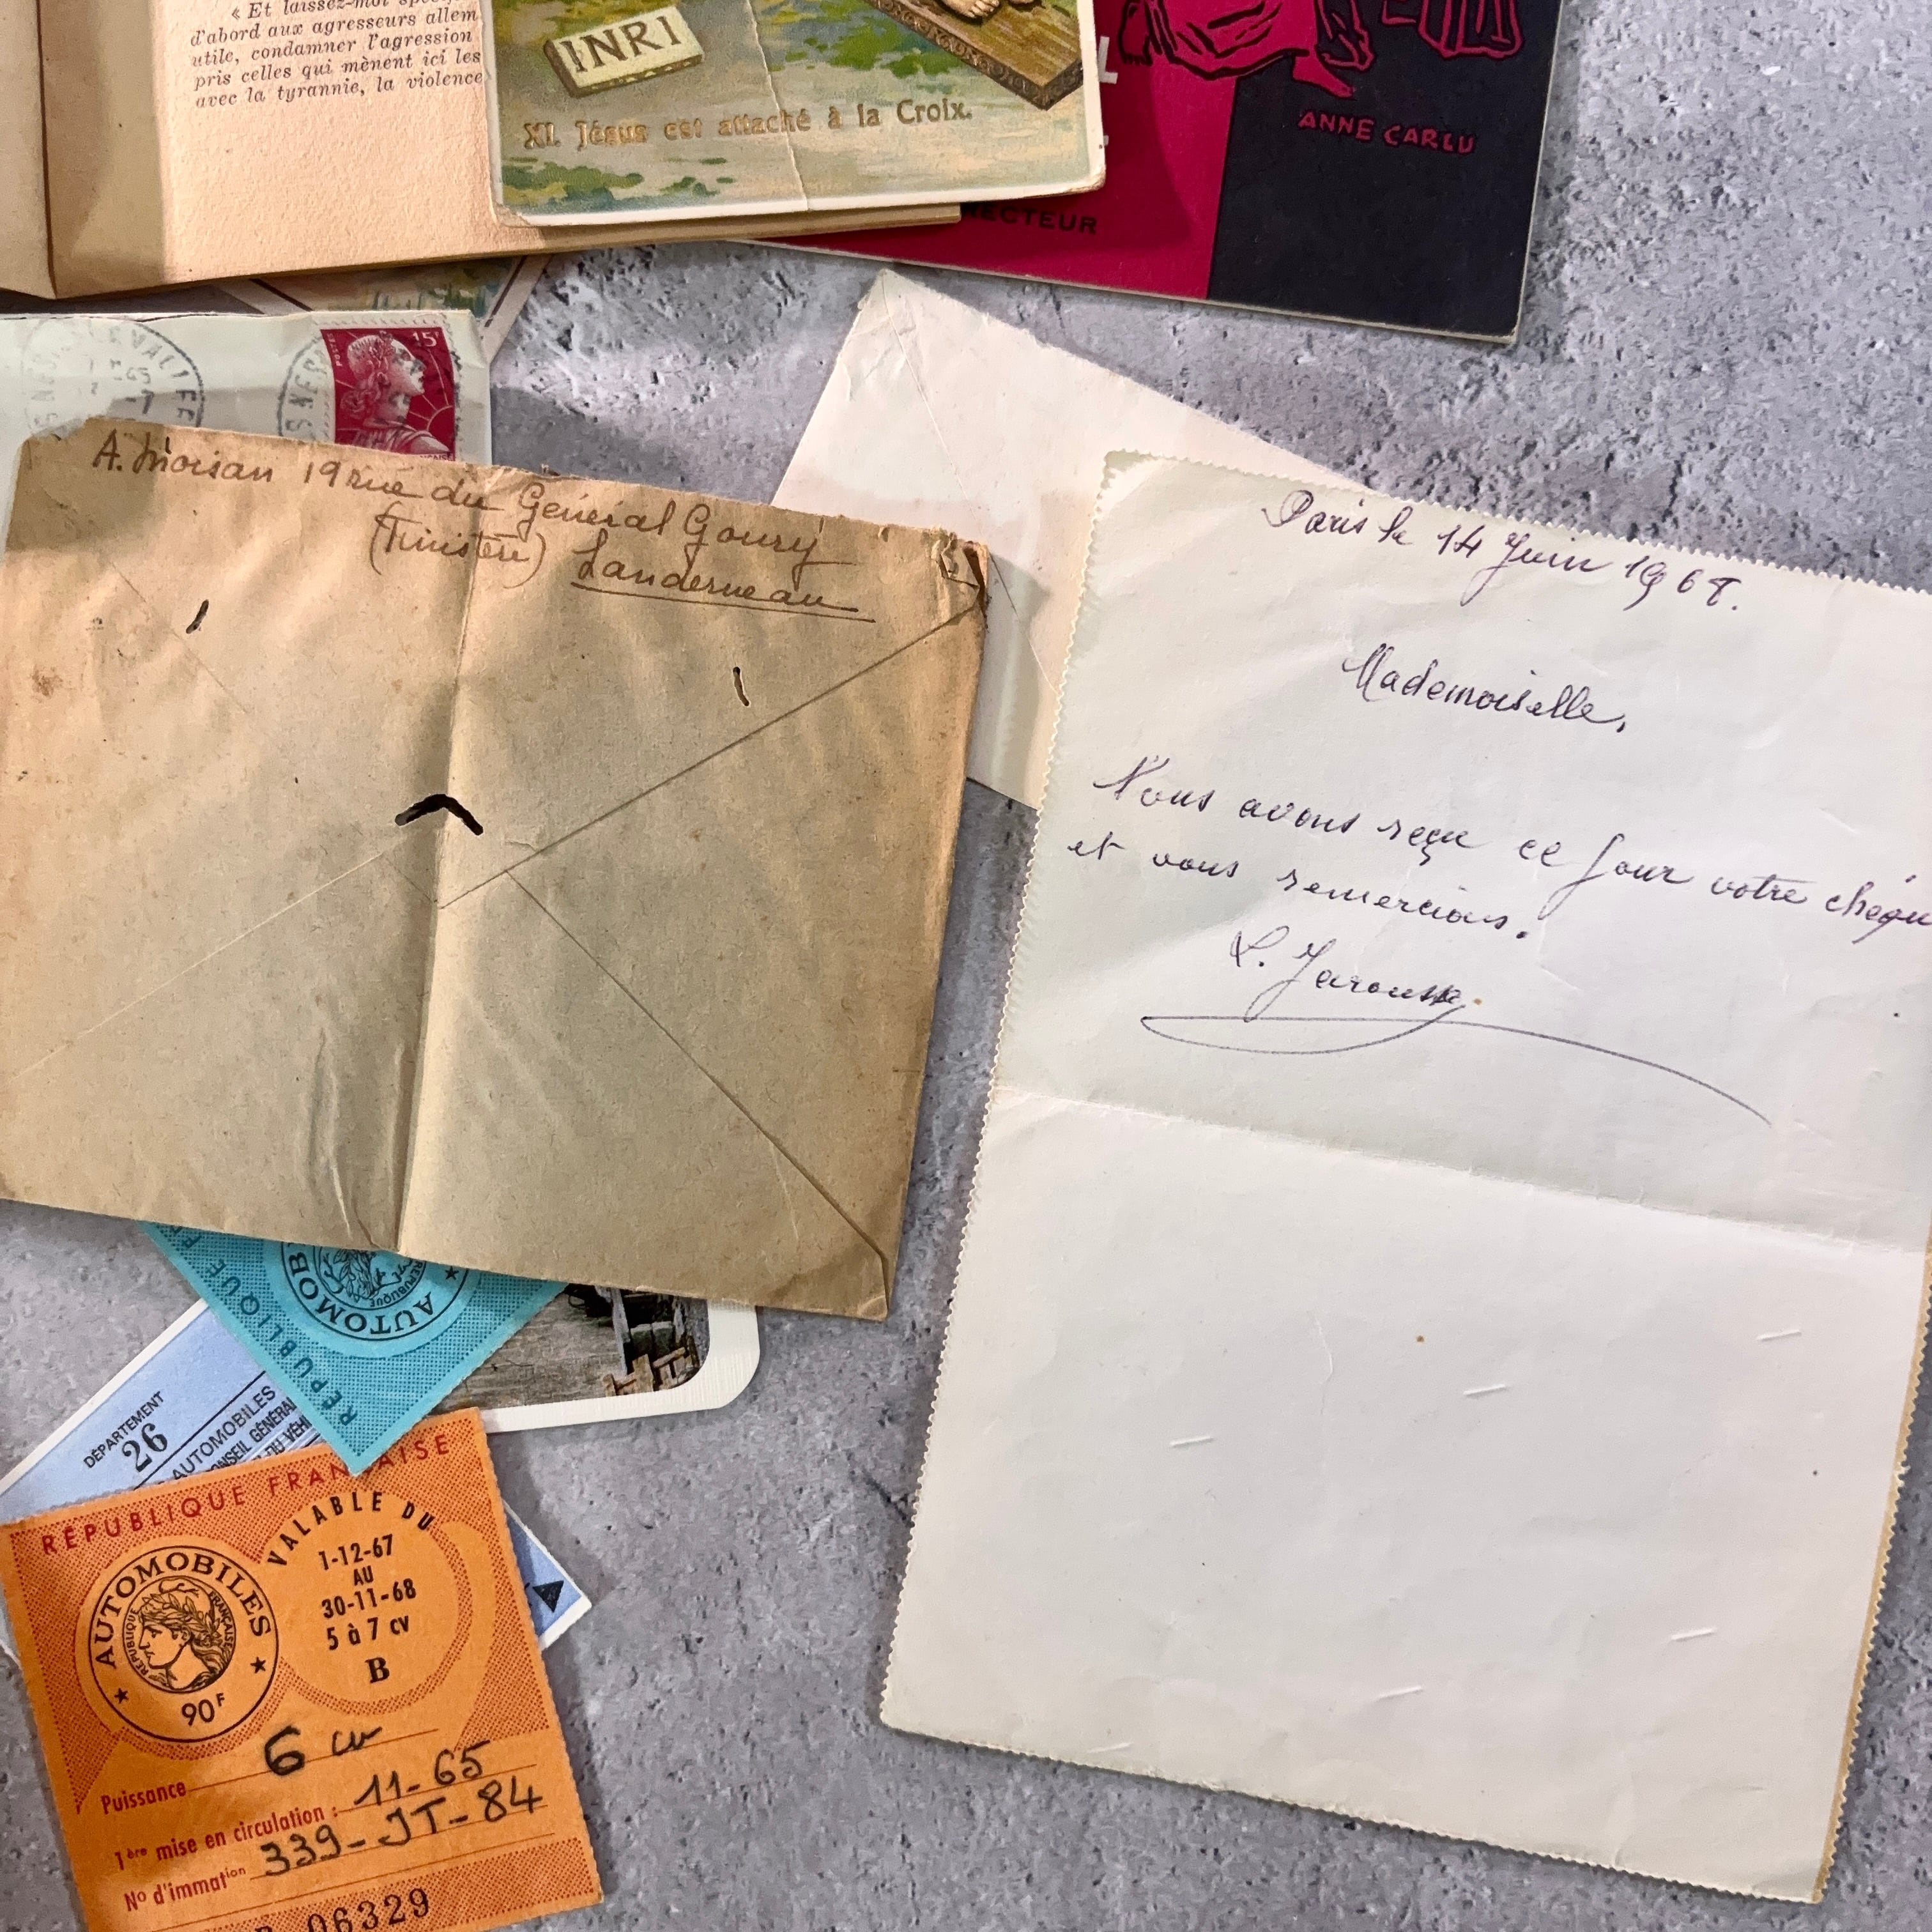 « Et laissez-moi
d'abord aux agresseurs allem
utile, condamner l'agression
pris celles qui mènent ici les
avec la tyrannie, la violence
INRI
XI. Jésus est attaché à la Croix.
ANNE CARLU
RECTEUR
15F
A. Moisan 19 rue du Général Goury
(Finistère) Landerneau
Paris le 14 Juin 1968.
Mademoiselle,
Nous avons reçu ce jour votre chéqu
et vous remercions.
L. Jarousse
AUTOMOB
RÉPUBLIQUE
DÉPARTEMENT
26
AUTOMOBILES
CONSEIL GÉNÉRAL
DU VÉH
RÉPUBLIQUE FRANÇAISE
VALABLE DU
1-12-67
AU
30-11-68
5 à 7 cv
B
AUTOMOBILES
RÉPUBLIQUE FRANÇAISE
90F
Puissance 6 cv
1ère mise en circulation : 11-65
No d'immation 339-JT-84
06329